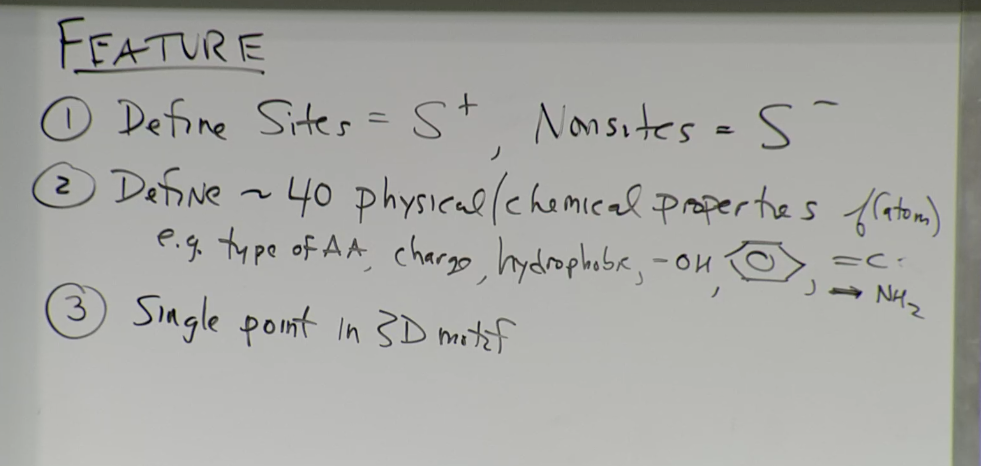 FEATURE
① Define Sites = S⁺, Nonsites = S⁻
② Define ~ 40 physical/chemical properties f(atom)
e.g. type of AA, charge, hydrophobic, -OH, , =C
→ NH₂
③ Single point in 3D motif